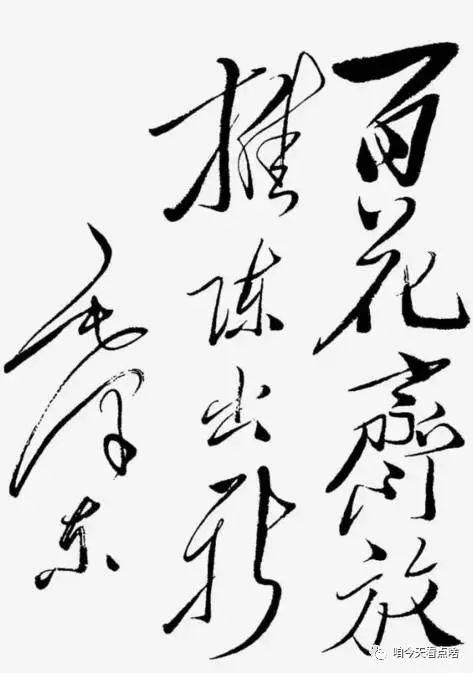 百花齊放
推陈出新
毛泽东
咱今天看点啥